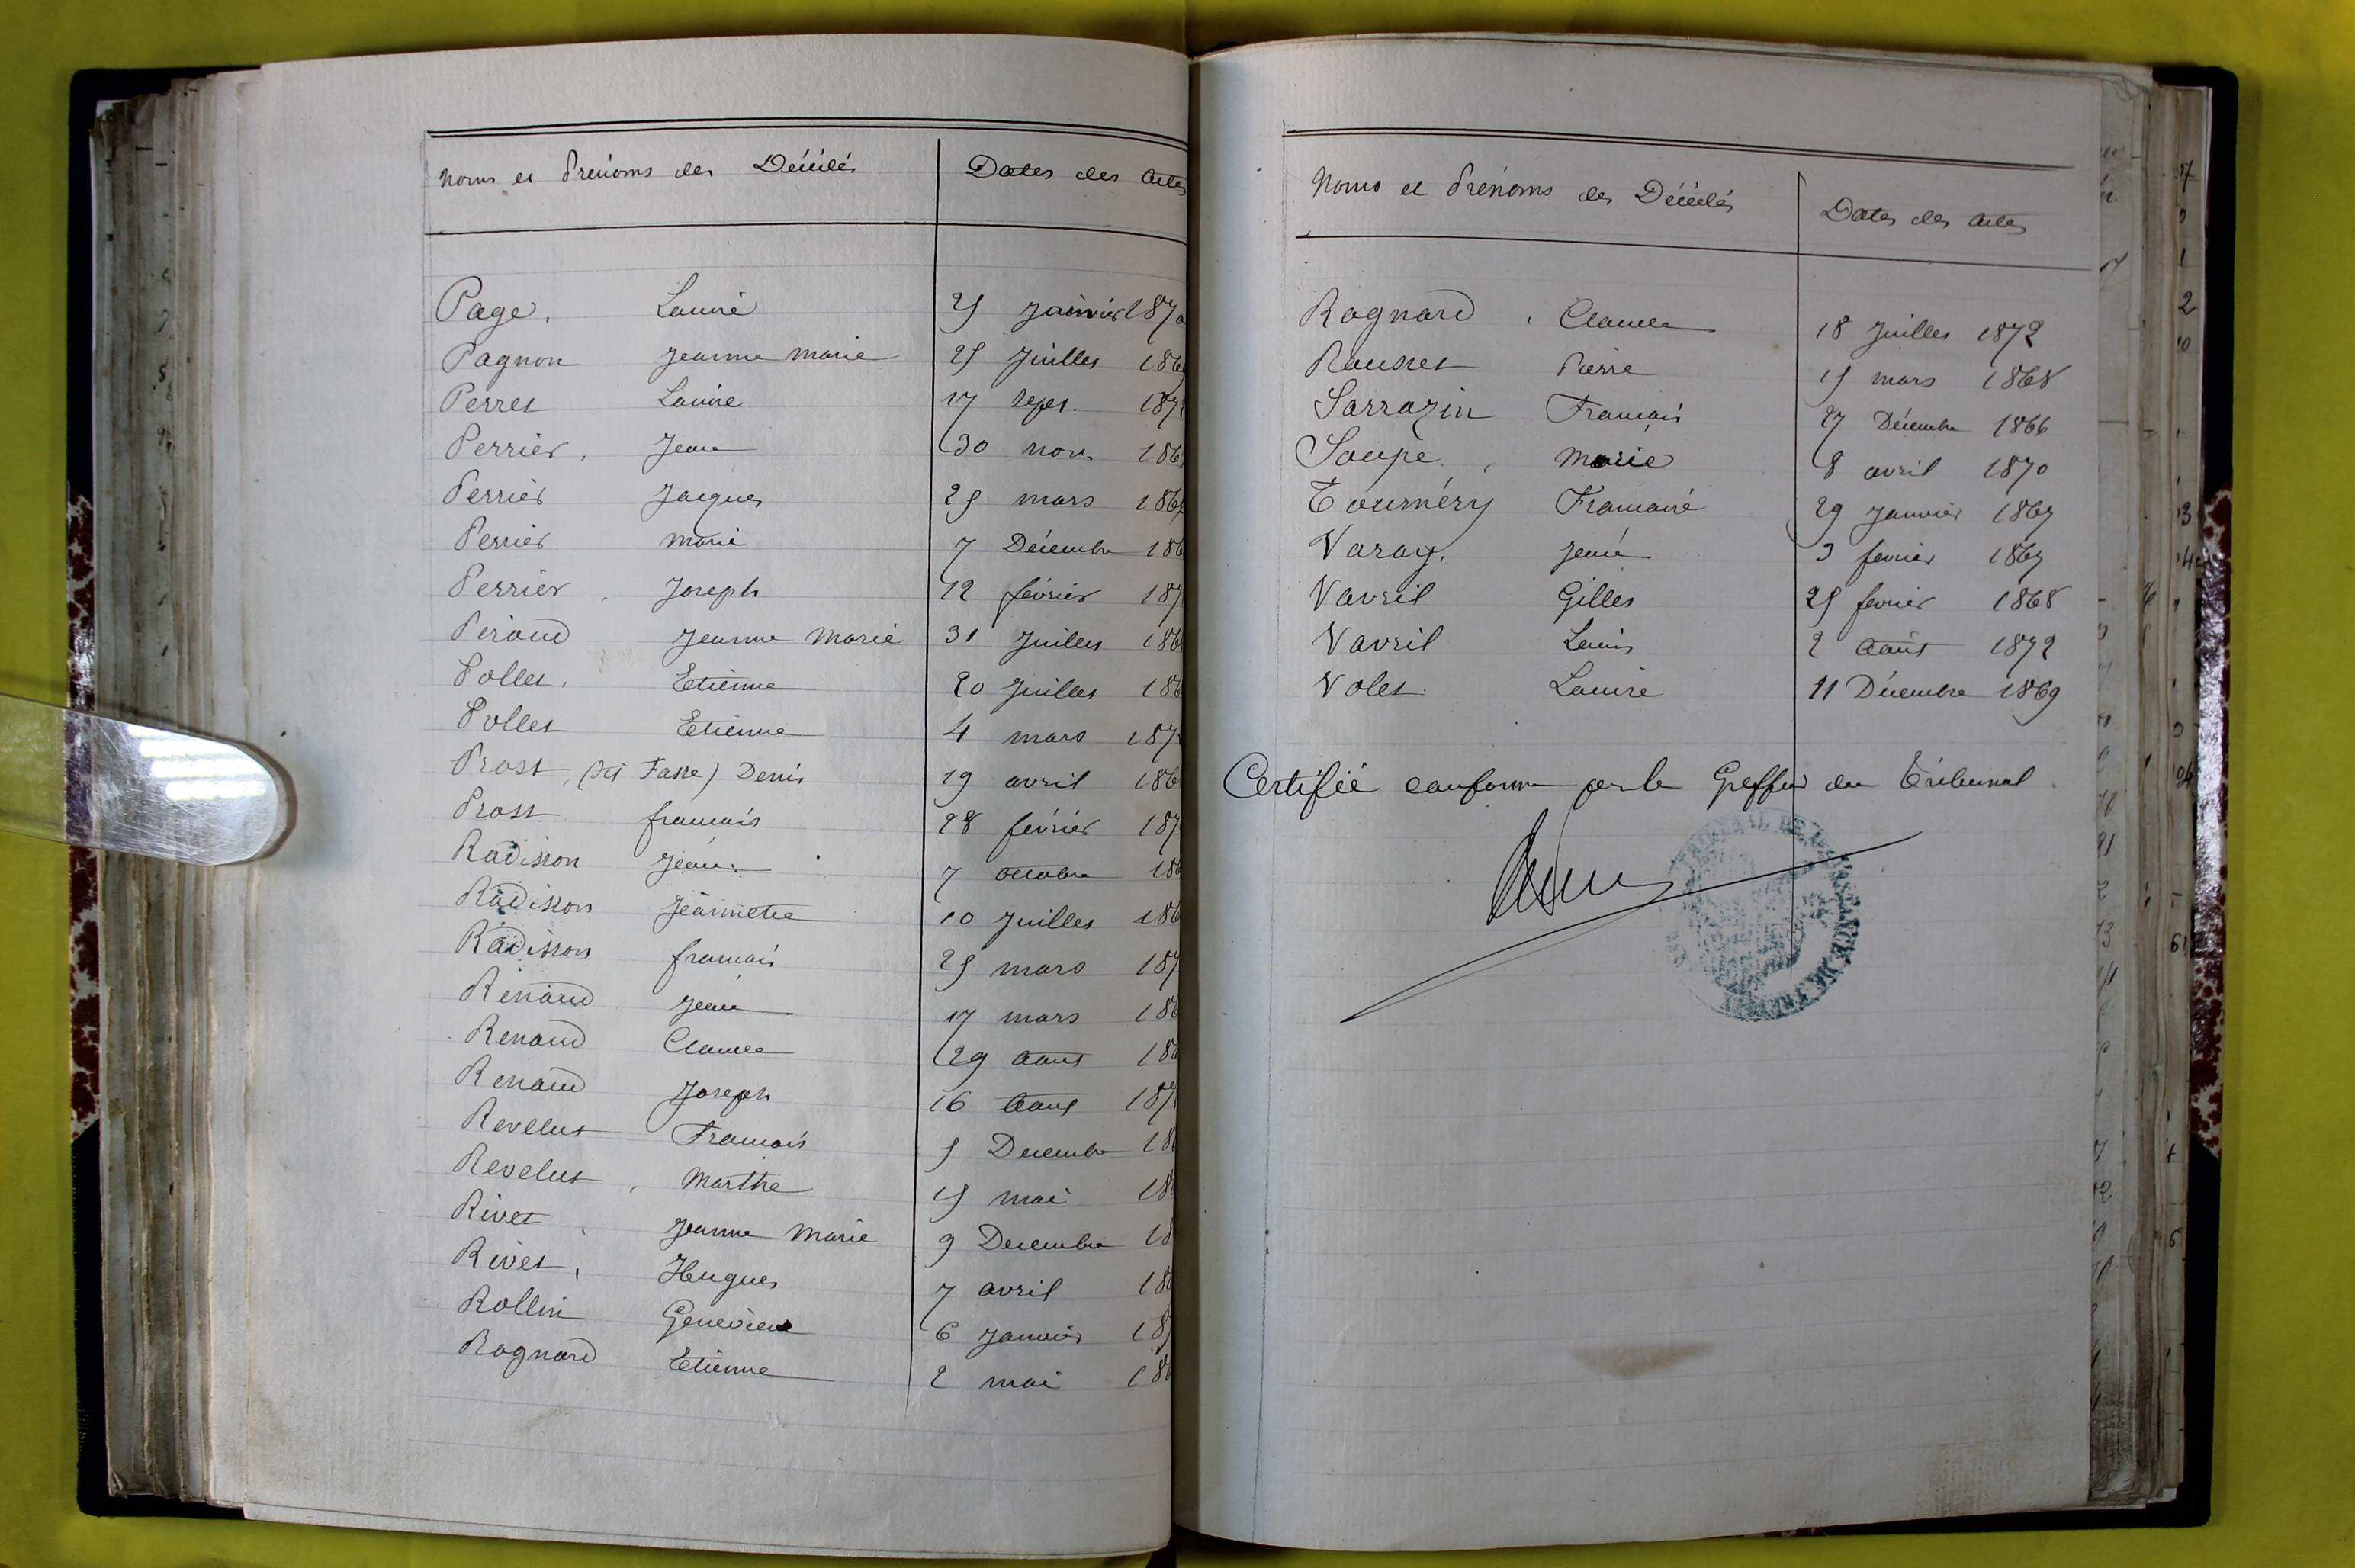 Noms et Prénoms des Décédés Dates des Actes
Page, Louise 25 Janvier 1870
Pagnon Jeanne Marie 25 Juillet 186
Perret Louise 17 Sept. 187
Perrier, Jean 30 nov. 186
Perrier Jacques 25 mars 186
Perrier Marie 7 Décembre 186
Perrier, Joseph 12 février 187
Peraud Jeanne Marie 31 Juillet 186
Pollet, Etienne 20 Juillet 186
Pollet Etienne 4 mars 187
Prost, (dit Fasse) Denis 19 avril 186
Prost françois 28 février 187
Radisson Jean 7 octobre 18
Radisson Jeannette 10 Juillet 186
Radisson françois 25 mars 187
Renaud Jean 17 mars 186
Renaud Claude 29 aout 18
Renaud Joseph 16 Aout 187
Revelut François 5 Decembre 18
Revelut, Marthe 15 mai 18
Rivet Jeanne Marie 9 Decembre 18
Rivet, Hugues 7 avril 18
Rollin Geneviève 6 Janvier 18
Rognard Etienne 2 mai 18
Noms et Prénoms des Décédés Dates des Actes
Rognard, Claude 18 Juillet 1872
Rousset Pierre 15 mars 1868
Sarrazin François 27 Décembre 1866
Soupe, Marie 8 avril 1870
Tournéry Françoise 29 Janvier 1867
Varay, Jean 3 fevrier 1867
Vavril Gilles 25 fevrier 1868
Vavril Louis 2 Août 1872
Volet Louise 11 Décembre 1869
Certifié conforme par le Greffier du Tribunal